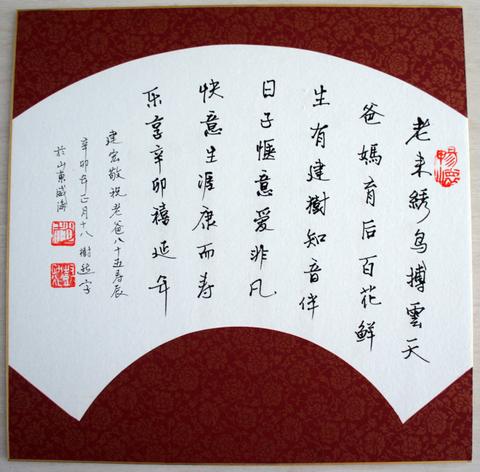 老来绣鸟搏雲天
爸媽育后百花鮮
生有建樹知音伴
日子惬意爱非凡
快意生涯康而寿
乐享辛卯禧延年
建宏敬祝老爸八十五寿辰
辛卯年正月十八 樹字
於山東威海